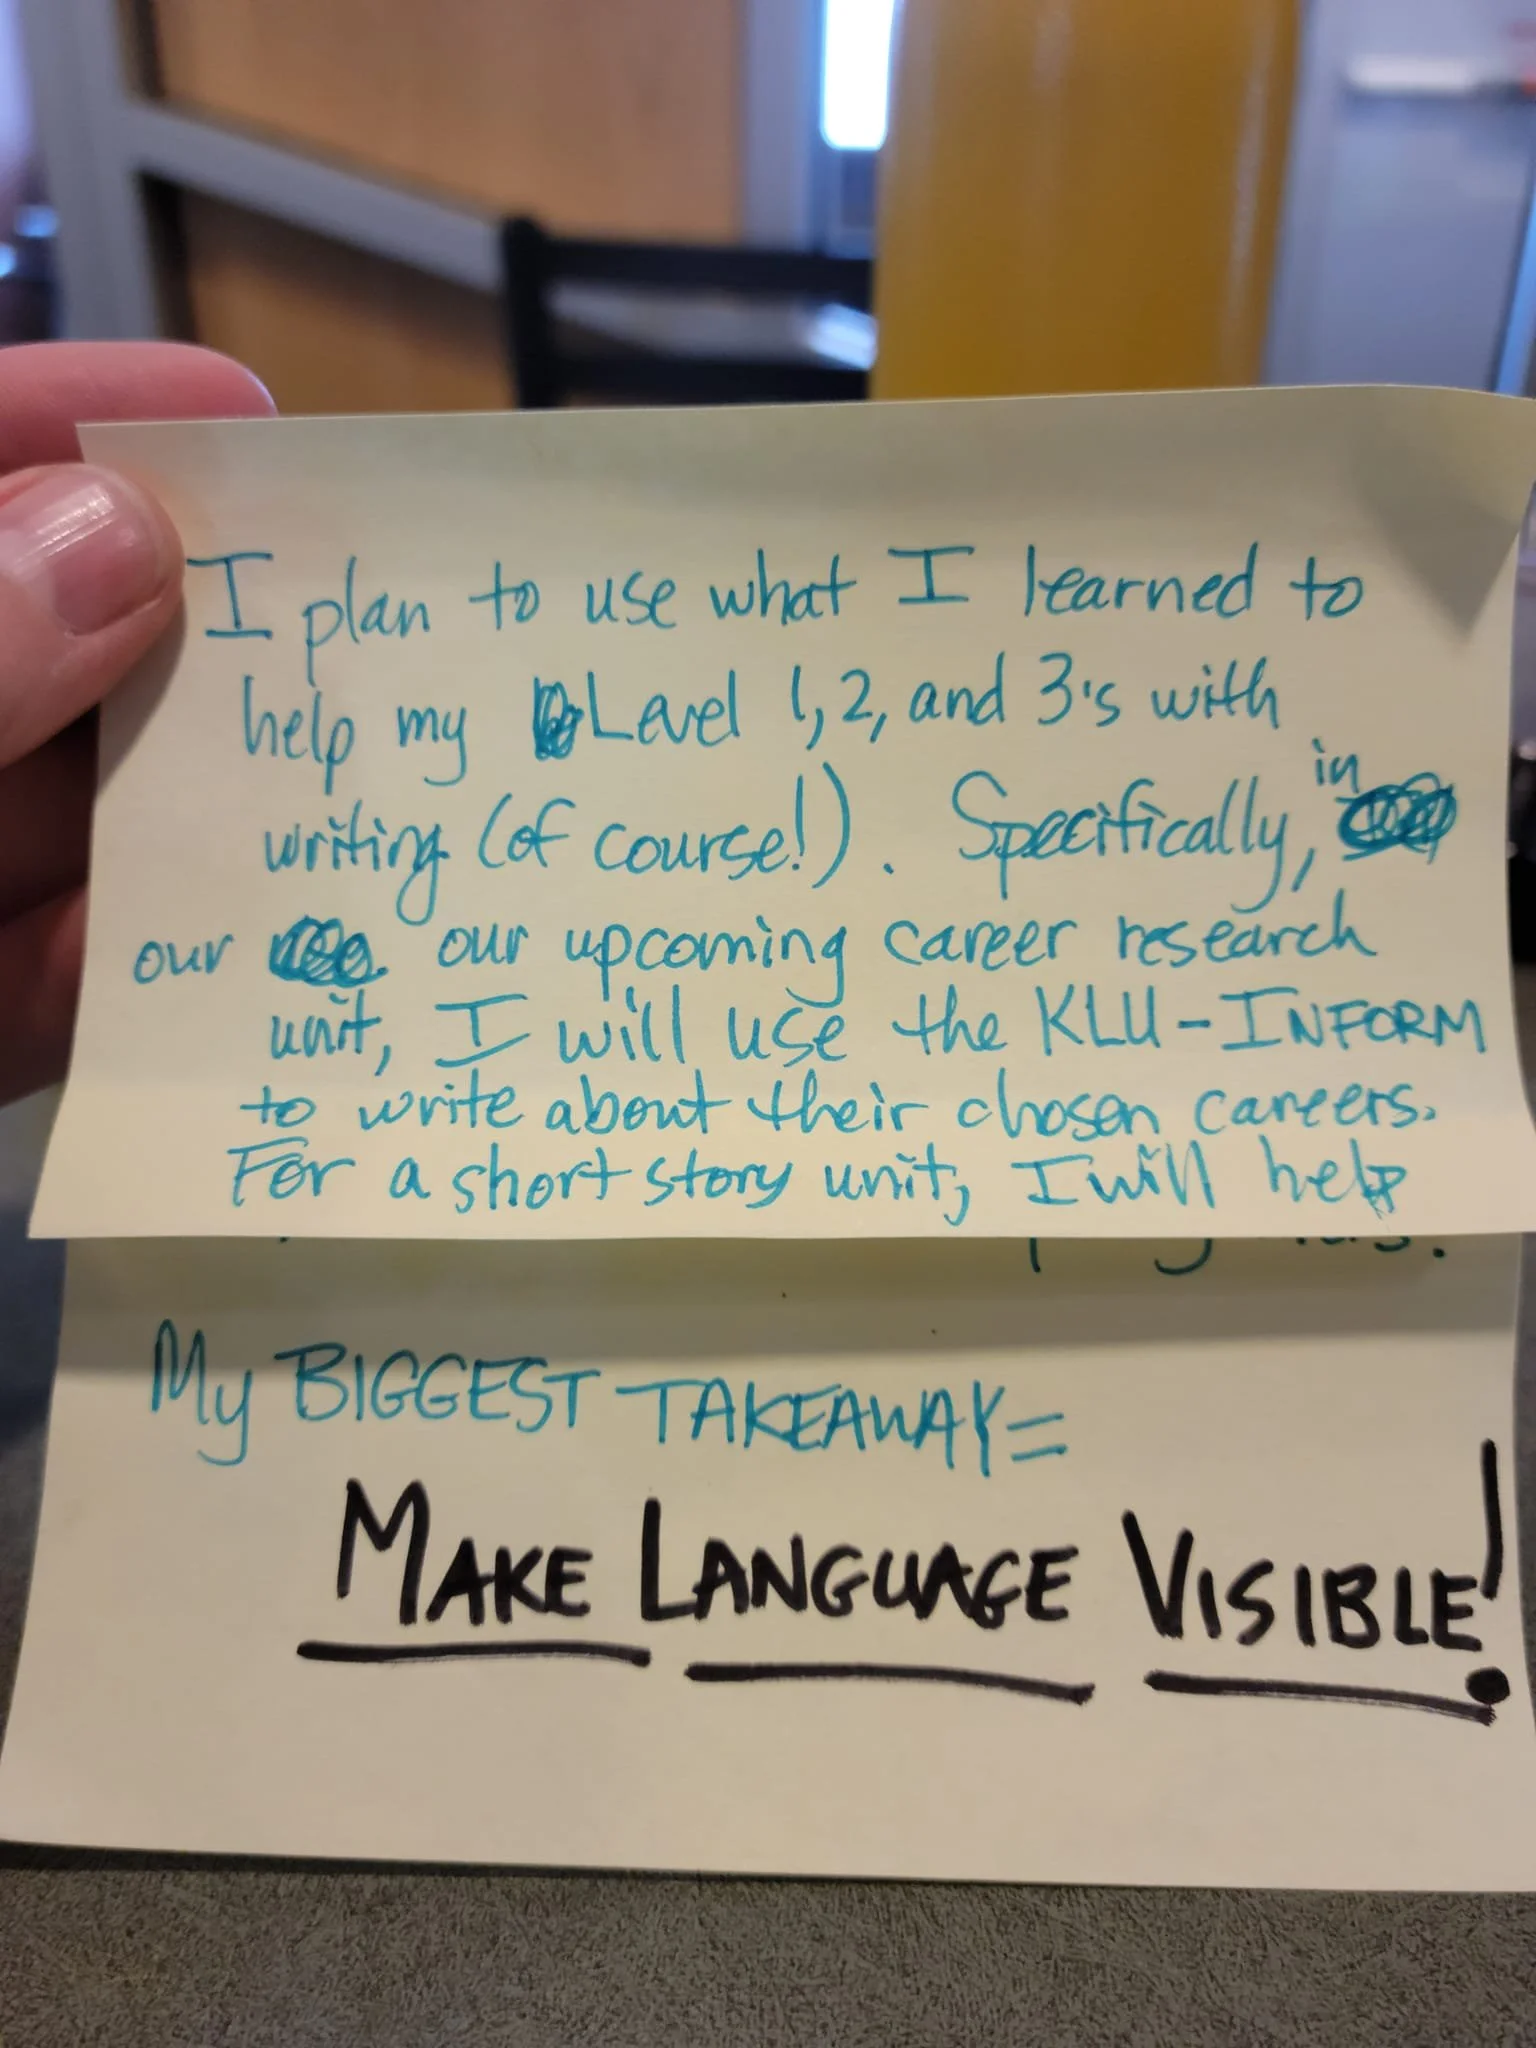 I plan to use what I learned to
help my Level 1, 2, and 3's with
writing (of course!). Specifically, in
our our upcoming career research
unit, I will use the KLU-INFORM
to write about their chosen careers.
For a short story unit, I will help
My BIGGEST TAKEAWAY=
MAKE LANGUAGE VISIBLE!